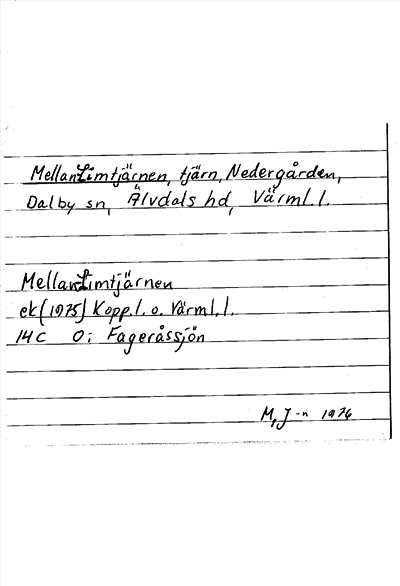 MellanLimtjärnen, tjärn, Nedergården,
Dalby sn, Älvdals hd, Värml.l.
MellanLimtjärnen
ek (1975) Kopp.l. o. Värml.l.
14 C O; Fageråssjön
M, J-n 1976